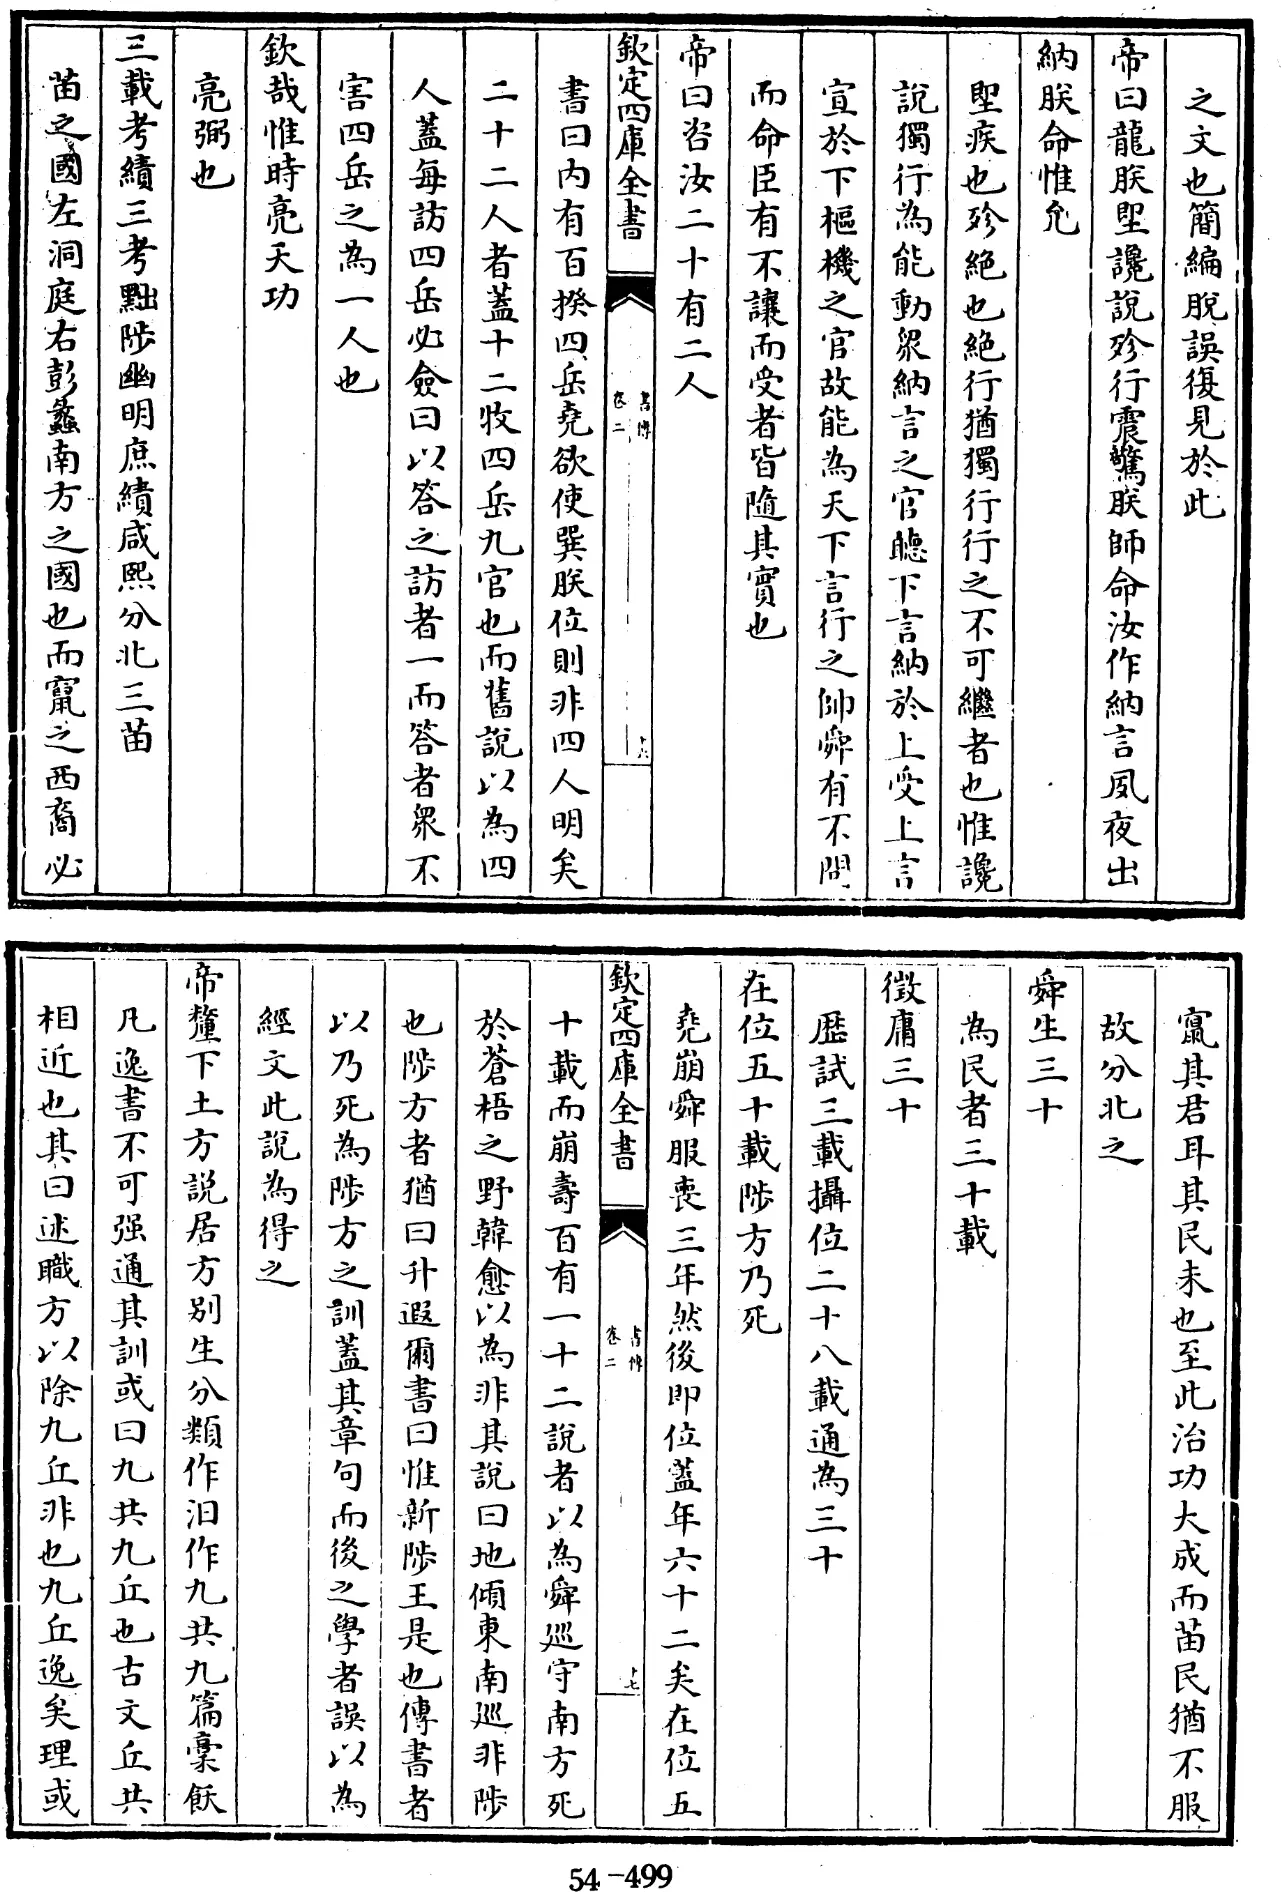 之文也簡編脫誤復見於此
帝曰龍朕堲讒說殄行震驚朕師命汝作納言夙夜出
納朕命惟允
堲疾也殄絕也絕行猶獨行行之不可繼者也惟讒
說獨行為能動衆納言之官聽下言納於上受上言
宣於下樞機之官故能為天下言行之帥舜有不問
而命臣有不讓而受者皆隨其實也
帝曰咨汝二十有二人
欽定四庫全書
書傳
卷二
十六
書曰內有百揆四岳堯欲使巽朕位則非四人明矣
二十二人者蓋十二牧四岳九官也而舊說以為四
人蓋每訪四岳必僉曰以答之訪者一而答者衆不
害四岳之為一人也
欽哉惟時亮天功
亮弼也
三載考績三考黜陟幽明庶績咸熙分北三苗
苗之國左洞庭右彭蠡南方之國也而竄之西裔必
竄其君耳其民未也至此治功大成而苗民猶不服
故分北之
舜生三十
為民者三十載
徵庸三十
歷試三載攝位二十八載通為三十
在位五十載陟方乃死
堯崩舜服喪三年然後即位蓋年六十二矣在位五
欽定四庫全書
書傳
卷二
十七
十載而崩壽百有一十二說者以為舜巡守南方死
於蒼梧之野韓愈以為非其說曰地傾東南巡非陟
也陟方者猶曰升遐爾書曰惟新陟王是也傳書者
以乃死為陟方之訓蓋其章句而後之學者誤以為
經文此說為得之
帝釐下土方說居方別生分類作汨作九共九篇稾飫
凡逸書不可强通其訓或曰九共九丘也古文丘共
相近也其曰述職方以除九丘非也九丘逸矣理或
54-499